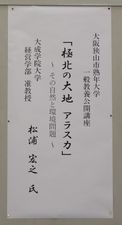 大阪狭山市熟年大学
一般教養公開講座
「極北の大地 アラスカ」
～その自然と環境問題～
大成学院大学
経営学部 准教授
松浦 宏之 氏